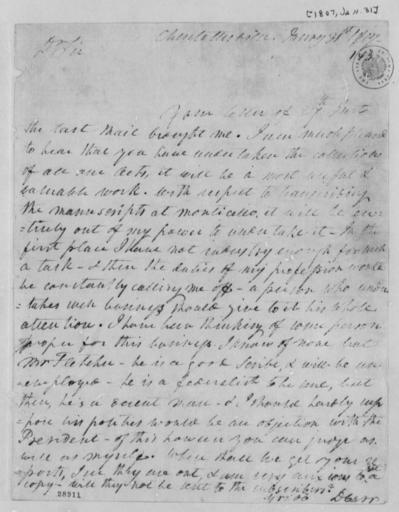 [1807, Jan. 31]
Charlottesville. January 31st 1807
Dr Sir
Your letter of 7th Inst
the last mail brought me. I am much pleased
to hear that you have undertaken the collection
of all our acts, it will be a most useful &
valuable work. with respect to transcribing
the manuscripts at monticello, it will be en-
=tirely out of my power to undertake it - In the
first place I have not industry enough for such
a task - & then the duties of my profession would
be constantly calling me off - a person who under
=takes such business should give to it his whole
attention. I have been thinking of some person
proper for this business. I know of none but
Mr Fletcher - he is a good Scribe, & will be un
=employed - he is a federalist to be sure, but
then, he is a decent man - & I should hardly sup
=pose his politics would be an objection with the
President - of this however you can judge as
well as myself. When shall we get your
ports, I see they are out, & am very anxious to a
copy - will they not be sent to the subscribers.
28911
D Carr